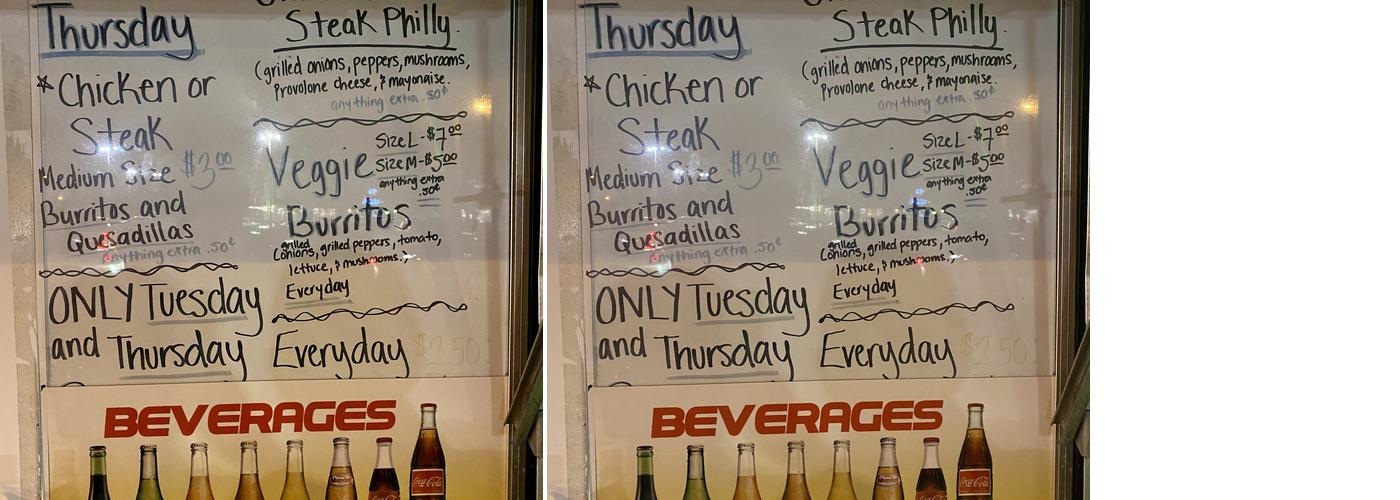 Thursday
☆Chicken or
Steak
Medium Size $3.00
Burritos and
Quesadillas
anything extra .50¢
ONLY Tuesday
and Thursday
Steak Philly.
(grilled onions, peppers, mushrooms,
Provolone cheese, & mayonaise.
anything extra .50¢
Veggie
Size L - $7.00
Size M - $5.00
anything extra
.50¢
Burritos
grilled
(onions, grilled peppers, tomato,
lettuce, & mushrooms.,
Everyday
Everyday $2.50
BEVERAGES
Coca-Cola
Coca-Cola
Thursday
☆Chicken or
Steak
Medium Size $3.00
Burritos and
Quesadillas
anything extra .50¢
ONLY Tuesday
and Thursday
Steak Philly.
(grilled onions, peppers, mushrooms,
Provolone cheese, & mayonaise.
anything extra .50¢
Veggie
Size L - $7.00
Size M - $5.00
anything extra
.50¢
Burritos
grilled
(onions, grilled peppers, tomato,
lettuce, & mushrooms.,
Everyday
Everyday $2.50
BEVERAGES
Coca-Cola
Coca-Cola